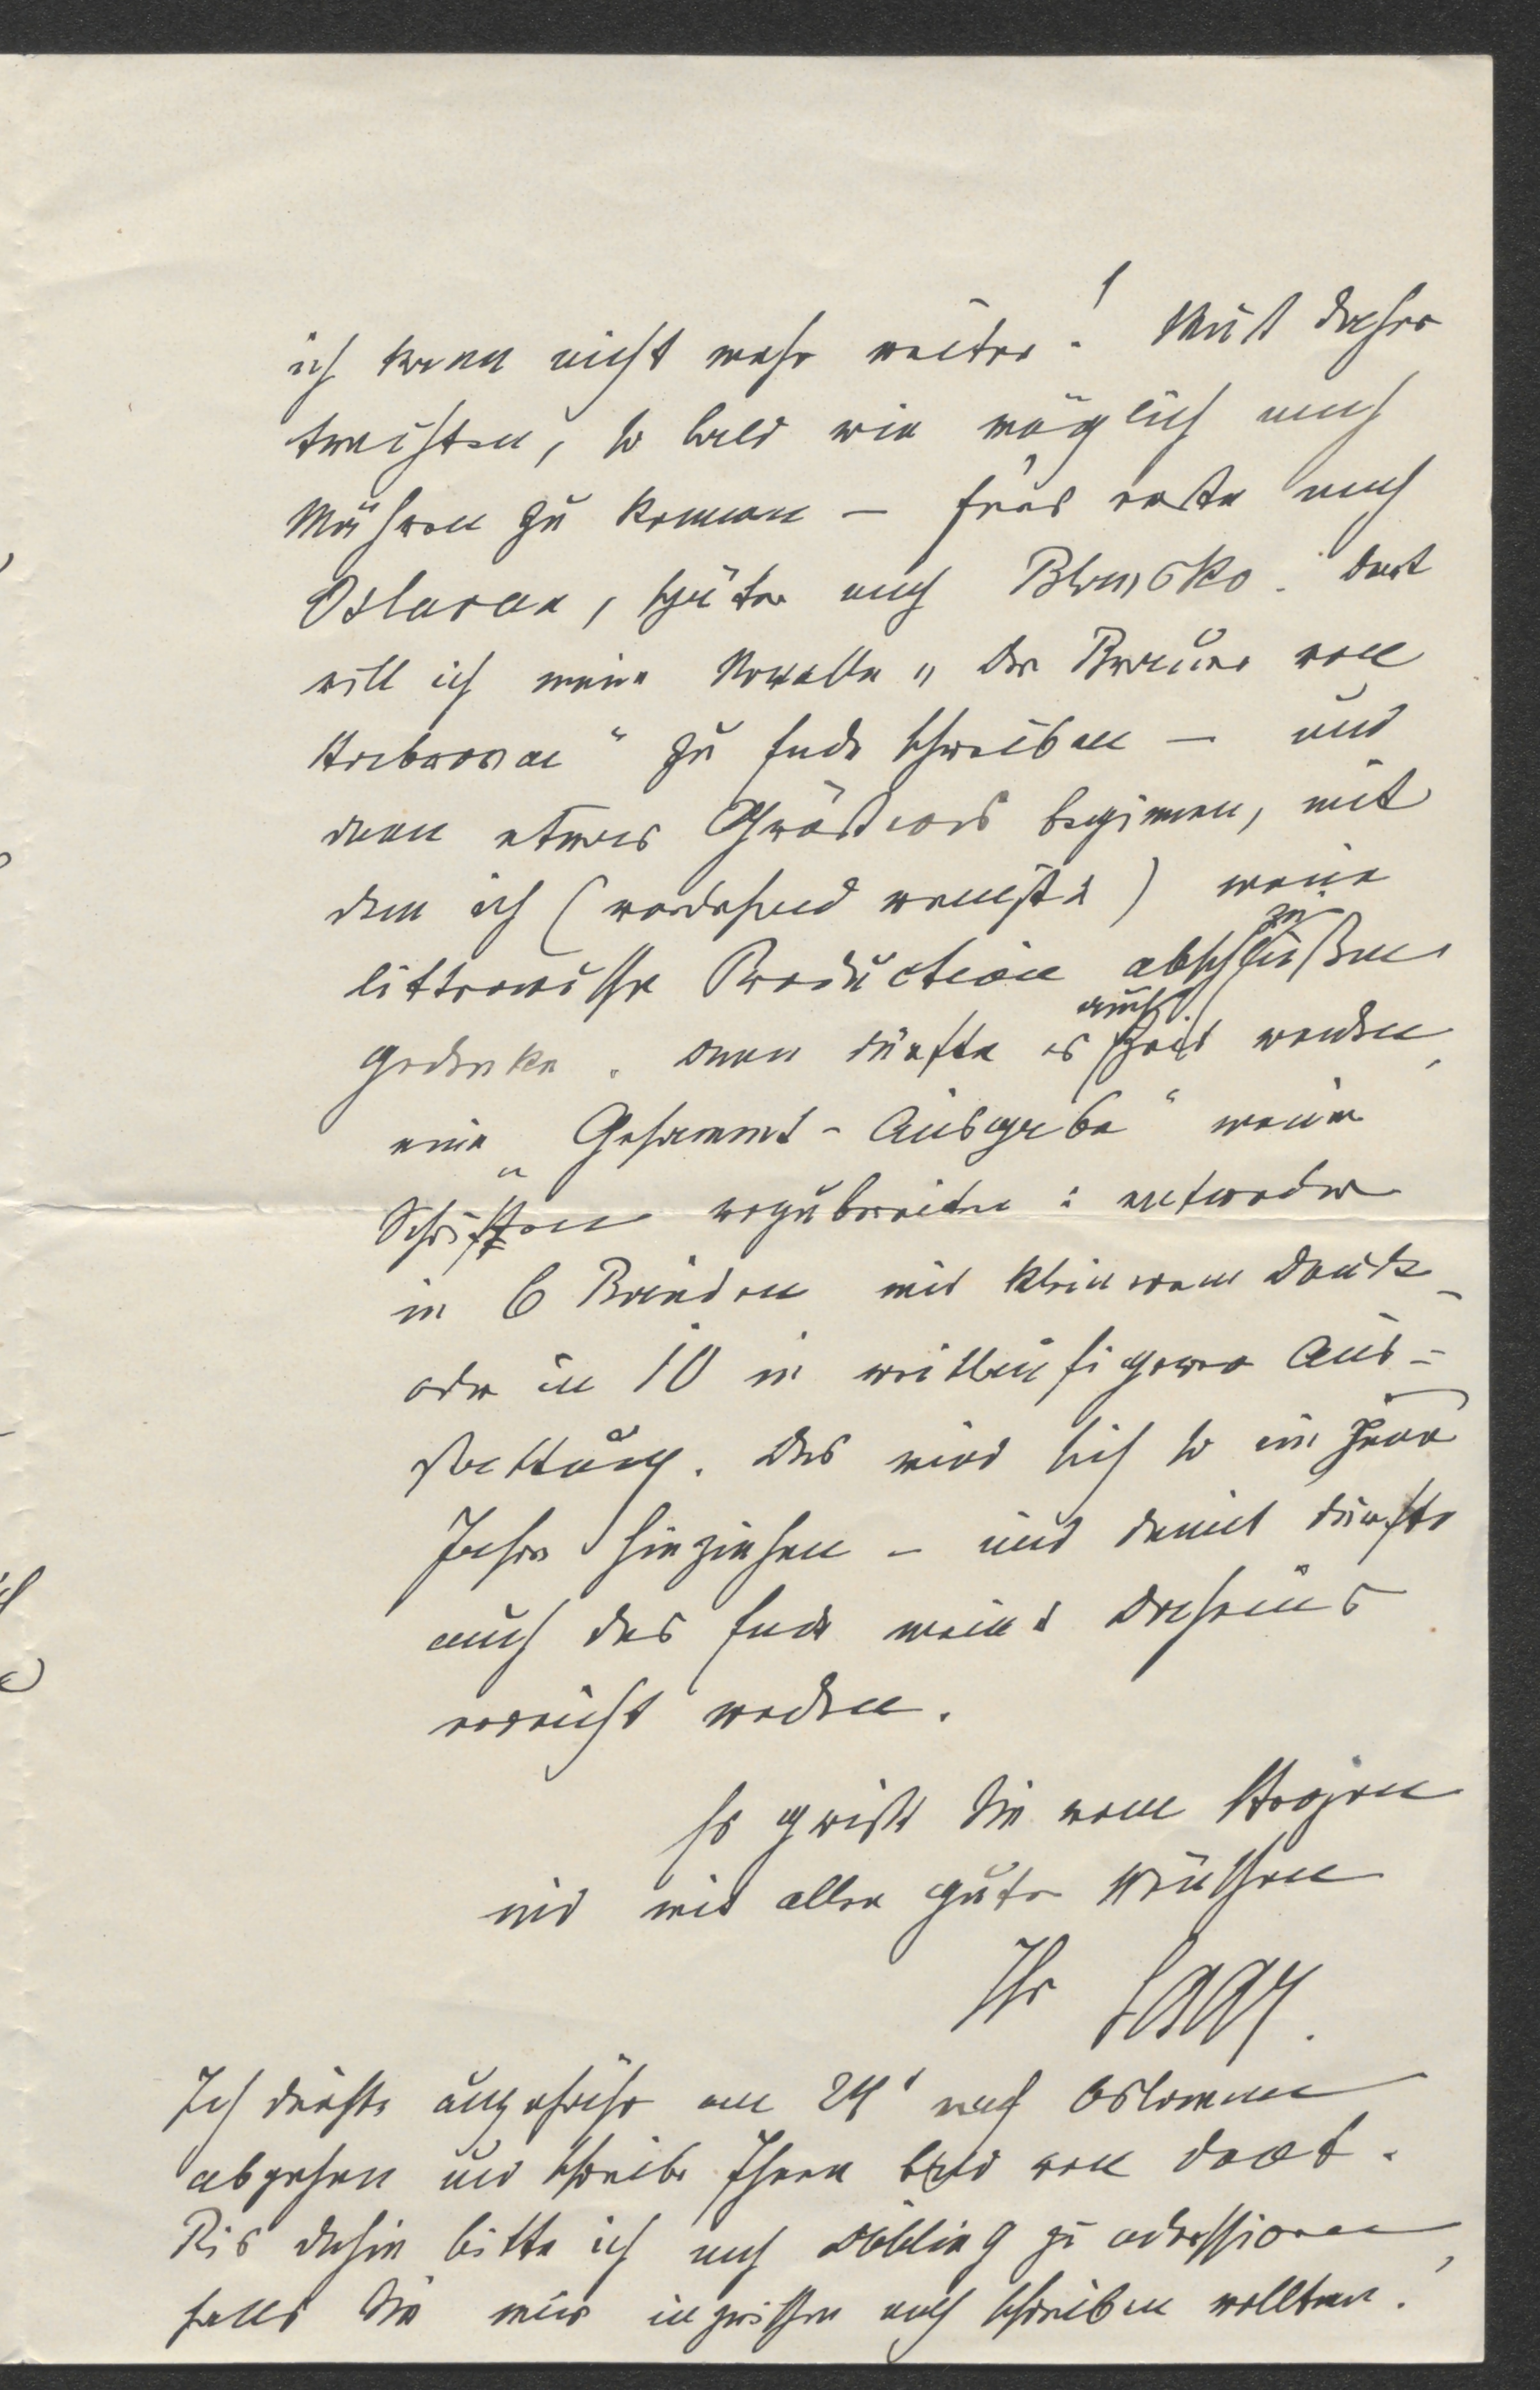 ich kann nicht mehr weiter! Muß daher
trachten, so bald wie möglich nach
Mähren zu kommen — fürs erste nach
Oslavan, später nach Blansko. Dort
will ich meine Novelle „Der Brauer von
Habrovan“ zu Ende schreiben — und
dann etwas Größeres beginnen, mit
dem ich (vorderhand wenigstens) meine
litterarische Production abzuschließen
gedenke. Dann dürfte es auch Zeit werden,
eine „Gesammt-Ausgabe“ meiner
Schriften vorzubereiten: entweder
in 6 Bänden mit kleinerem Druck –
oder in 10 in weitläufigerer Aus=
stattung. Das wird sich so ein paar
Jahre hinziehen – und damit dürfte
auch das Ende meines Daseins
erreicht werden.
Es grüßt Sie von Herzen
und mit allen guten Wünschen
Ihr Saar.
Ich dürfte ungefähr am 24t nach Oslawan
abgehen und schreibe Ihnen bald von dort.
Bis dahin bitte ich nach Döbling zu adressieren,
falls Sie mir inzwischen noch schreiben wollten.